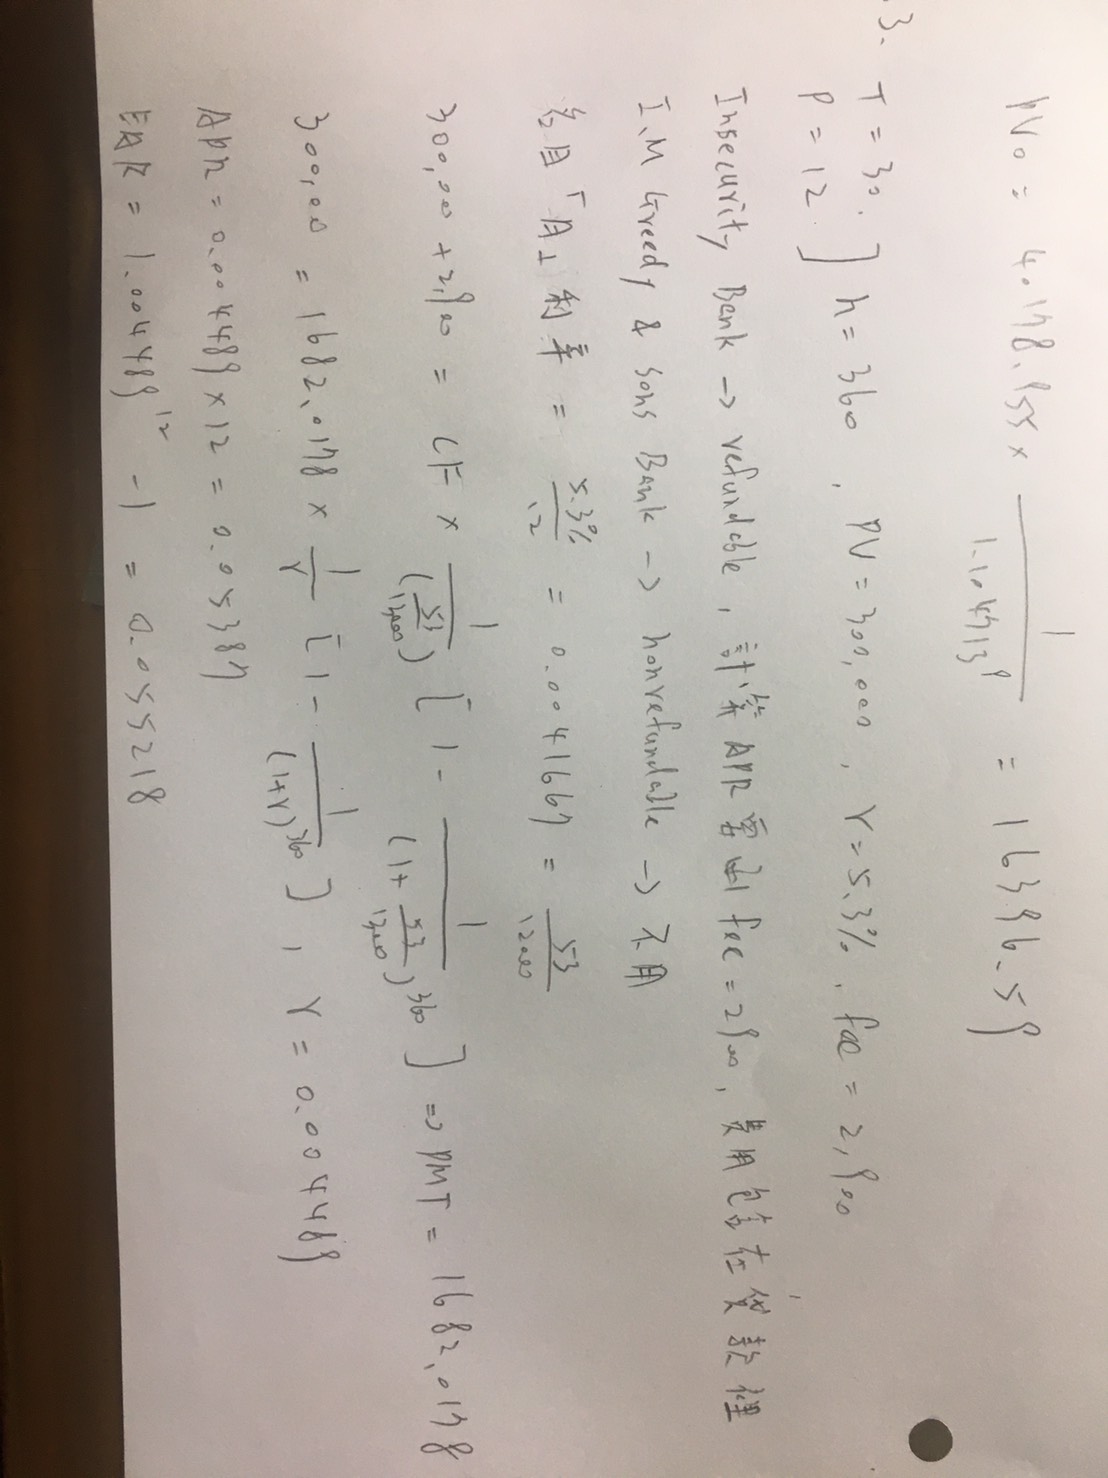 PV₀ = 4.178.955 × 1/1.104713⁹ = 16396.59
3. T = 30. P = 12. ] n = 360 , PV = 300,000 , r = 5.3% , fee = 2,900
Insecurity Bank → refundable , 計算 APR 要 fee = 2900 , 費用包含在貸款裡
I.M Greedy & Sons Bank → nonrefundable → 不用
名目「月」利率 = 5.3%/12 = 0.0041667 = 53/12000
300,000 + 2,900 = CF × 1/(53/12000) [ 1 - 1/(1+53/12000)³⁶⁰ ] => PMT = 1682.0178
300,00 = 1682.0178 × 1/r [ 1 - 1/(1+r)³⁶⁰ ] , r = 0.004489
APR = 0.004489 × 12 = 0.05387
EAR = 1.004489¹² - 1 = 0.055218